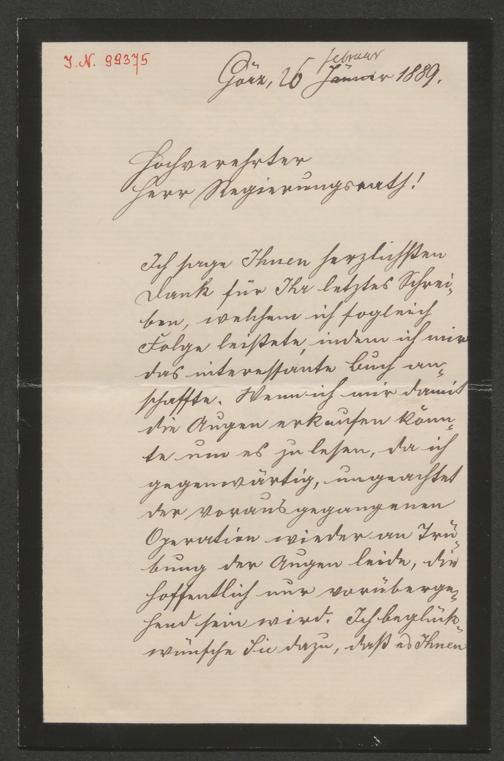 I.N. 99375
Februar
Görz, 26 Jänner 1889.
Hochverehrter
Herr Regierungsrath!
Ich sage Ihnen herzlichsten
Dank für Ihr letztes Schrei-
ben, welchem ich sogleich
Folge leistete, indem ich mir
das interessante Buch an-
schaffte. Wenn ich mir damit
die Augen erkaufen könn-
te um es zu lesen, da ich
gegenwärtig, ungeachtet
der vorausgegangenen
Operation wieder an Trü-
bung der Augen leide, die
hoffentlich nur vorüberge-
hend sein wird. Ich beglück-
wünsche Sie dazu, daß es Ihnen